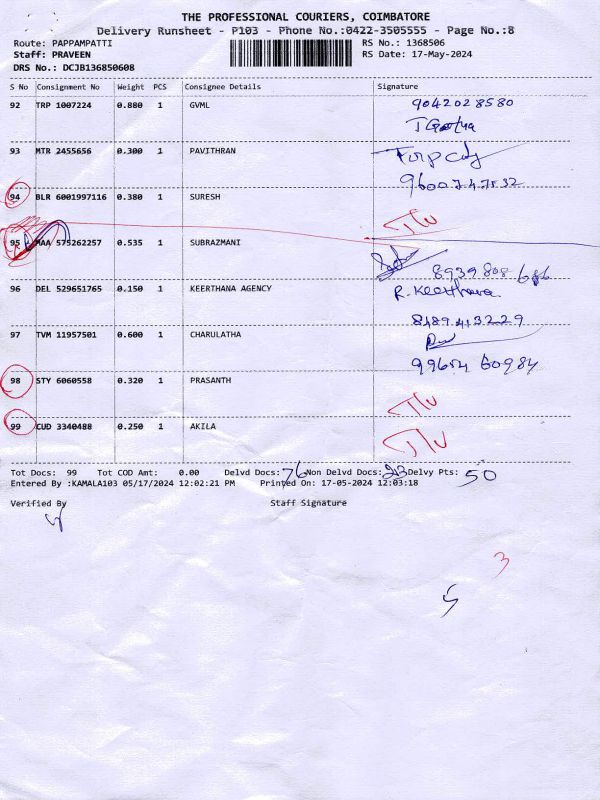 THE PROFESSIONAL COURIERS, COIMBATORE
Delivery Runsheet - P103 - Phone No.:0422-3505555 - Page No.:8
Route: PAPPAMPATTI RS No.: 1368506
Staff: PRAVEEN RS Date: 17-May-2024
DRS No.: DCJB136850608
S No Consignment No Weight PCS Consignee Details Signature
92 TRP 1007224 0.880 1 GVML 9042028580
93 MTR 2455656 0.300 1 PAVITHRAN
94 BLR 6001997116 0.380 1 SURESH
T/U
95 MAA 575262257 0.535 1 SUBRAZMANI
8939808
96 DEL 529651765 0.150 1 KEERTHANA AGENCY R. Keerthana
8489413229
97 TVM 11957501 0.600 1 CHARULATHA
99654 60984
98 STY 6060558 0.320 1 PRASANTH
T/U
99 CUD 3340488 0.250 1 AKILA
T/U
Tot Docs: 99 Tot COD Amt: 0.00 Delvd Docs: 76 Non Delvd Docs: 23 Delvy Pts: 50
Entered By :KAMALA103 05/17/2024 12:02:21 PM Printed On: 17-05-2024 12:03:18
Verified By Staff Signature
3